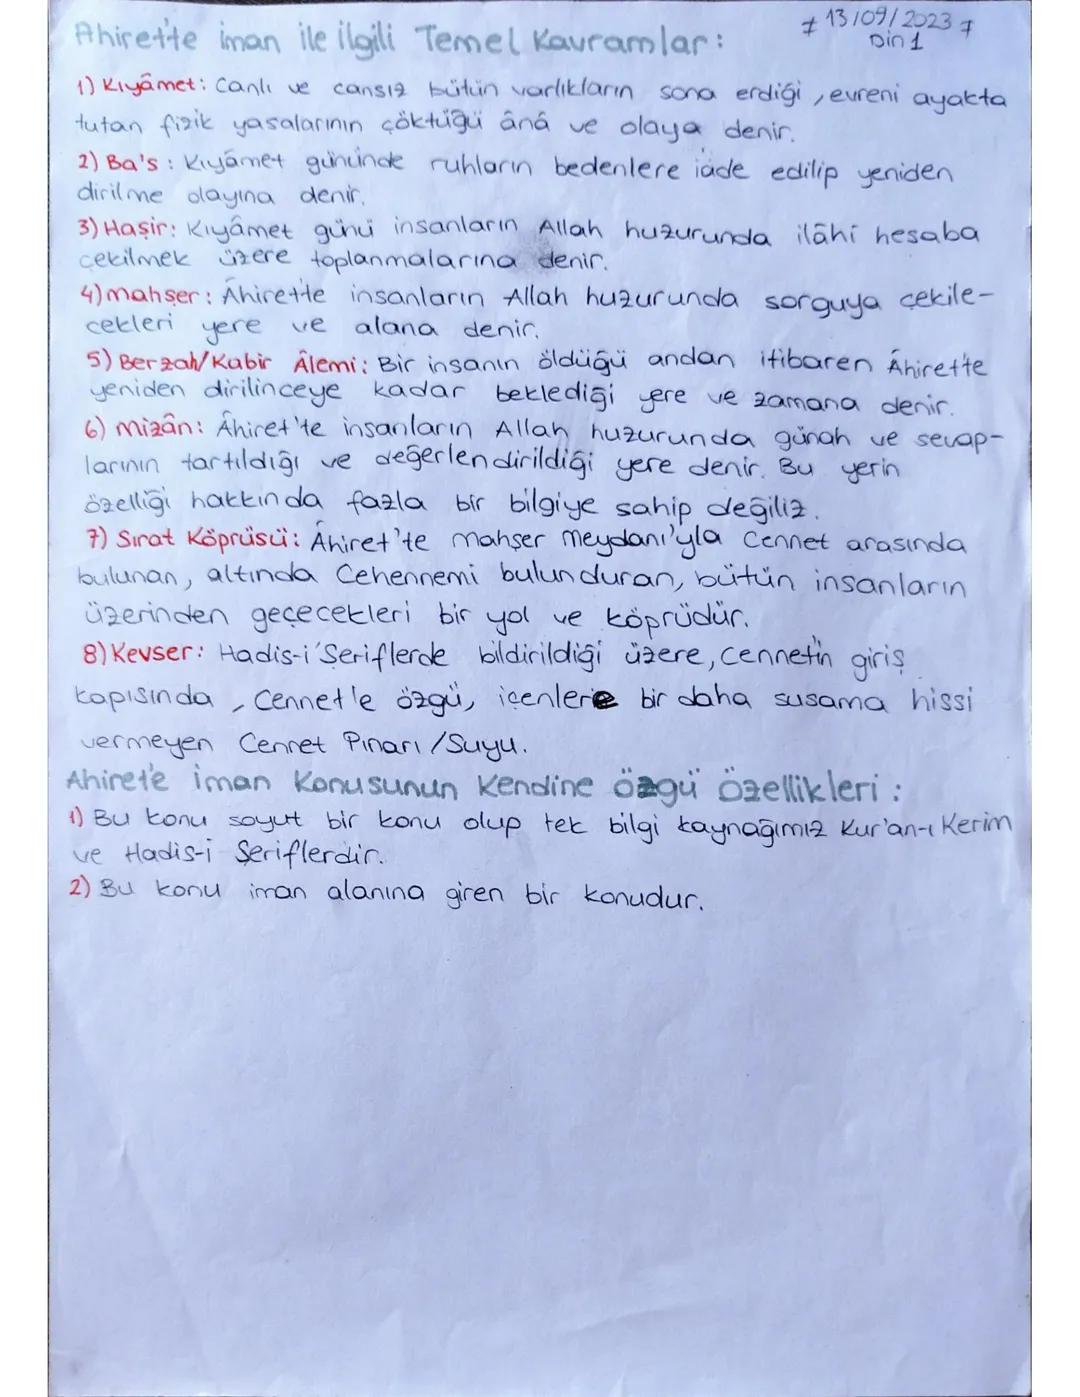 Ahirette iman ile ilgili Temel Kavramlar:
13/09/2023
Din 1
1) Kıyâmet: Canlı ve cansız bütün varlıkların sona erdiği, evreni ayakta
tutan fizik yasalarının çöktüğü ânâ ve olaya denir.
2) Ba's: Kıyâmet gününde ruhların bedenlere iâde edilip yeniden
dirilme olayına denir.
3) Haşir: Kıyâmet günü insanların Allah huzurunda ilâhi hesaba
çekilmek üzere toplanmalarına denir.
4) mahşer: Âhirette insanların Allah huzurunda sorguya çekile-
cekleri yere ve alana denir.
5) Berzah/Kabir Âlemi: Bir insanın öldüğü andan itibaren Âhirette
yeniden dirilinceye kadar beklediği yere ve zamana denir.
6) mizân: Âhiret'te insanların Allah huzurunda günah ve sevap-
larının tartıldığı ve değerlendirildiği yere denir. Bu yerin
özelliği hakkında fazla bir bilgiye sahip değiliz.
7) Sırat Köprüsü: Âhiret'te mahşer meydanı'yla Cennet arasında
bulunan, altında Cehennemi bulunduran, bütün insanların
üzerinden geçecekleri bir yol ve köprüdür.
8) Kevser: Hadis-i Şeriflerde bildirildiği üzere, cennetin giriş
kapısında, Cennet'e özgü, içenlere bir daha susama hissi
vermeyen Cennet Pınarı/Suyu.
Ahiret'e iman Konusunun Kendine özgü özellikleri:
1) Bu konu soyut bir konu olup tek bilgi kaynağımız Kur'an-ı Kerim
ve Hadis-i Şeriflerdir.
2) Bu konu iman alanına giren bir konudur.